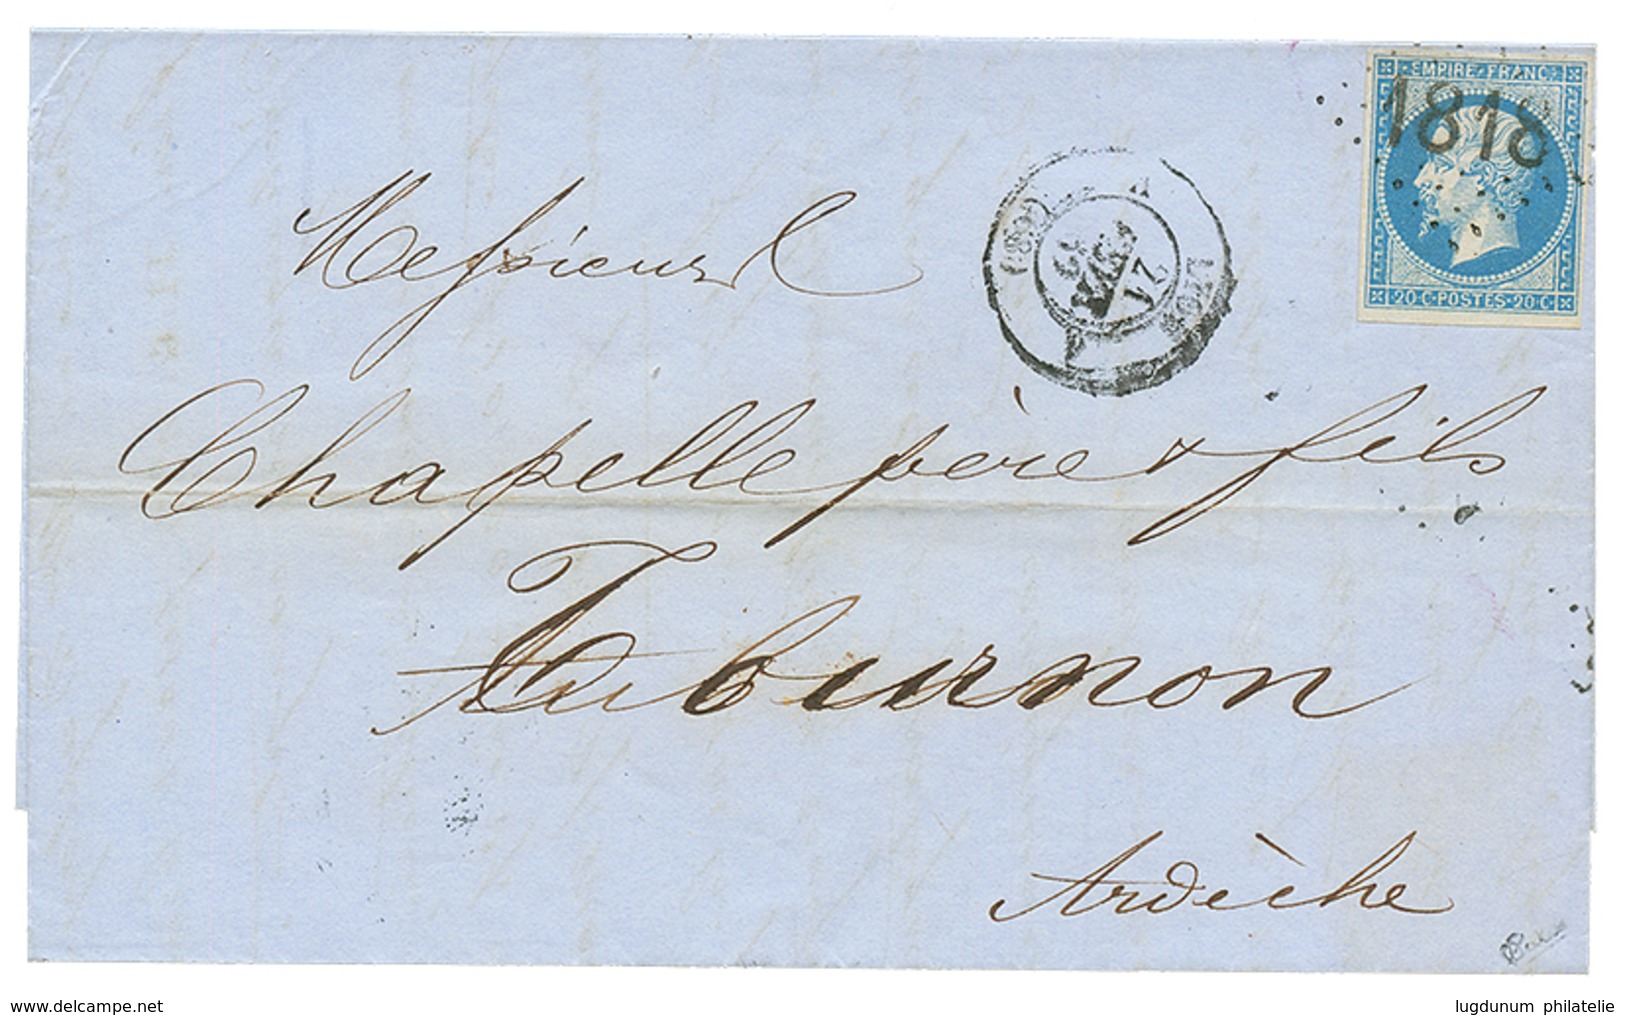 EMPIRE FRANC
1818
20 C · POSTES · 20 C
LYON
(68)
Messieurs
Chapelle père & fils
Tournon
Ardèche
www.delcampe.net
lugdunum philatelie